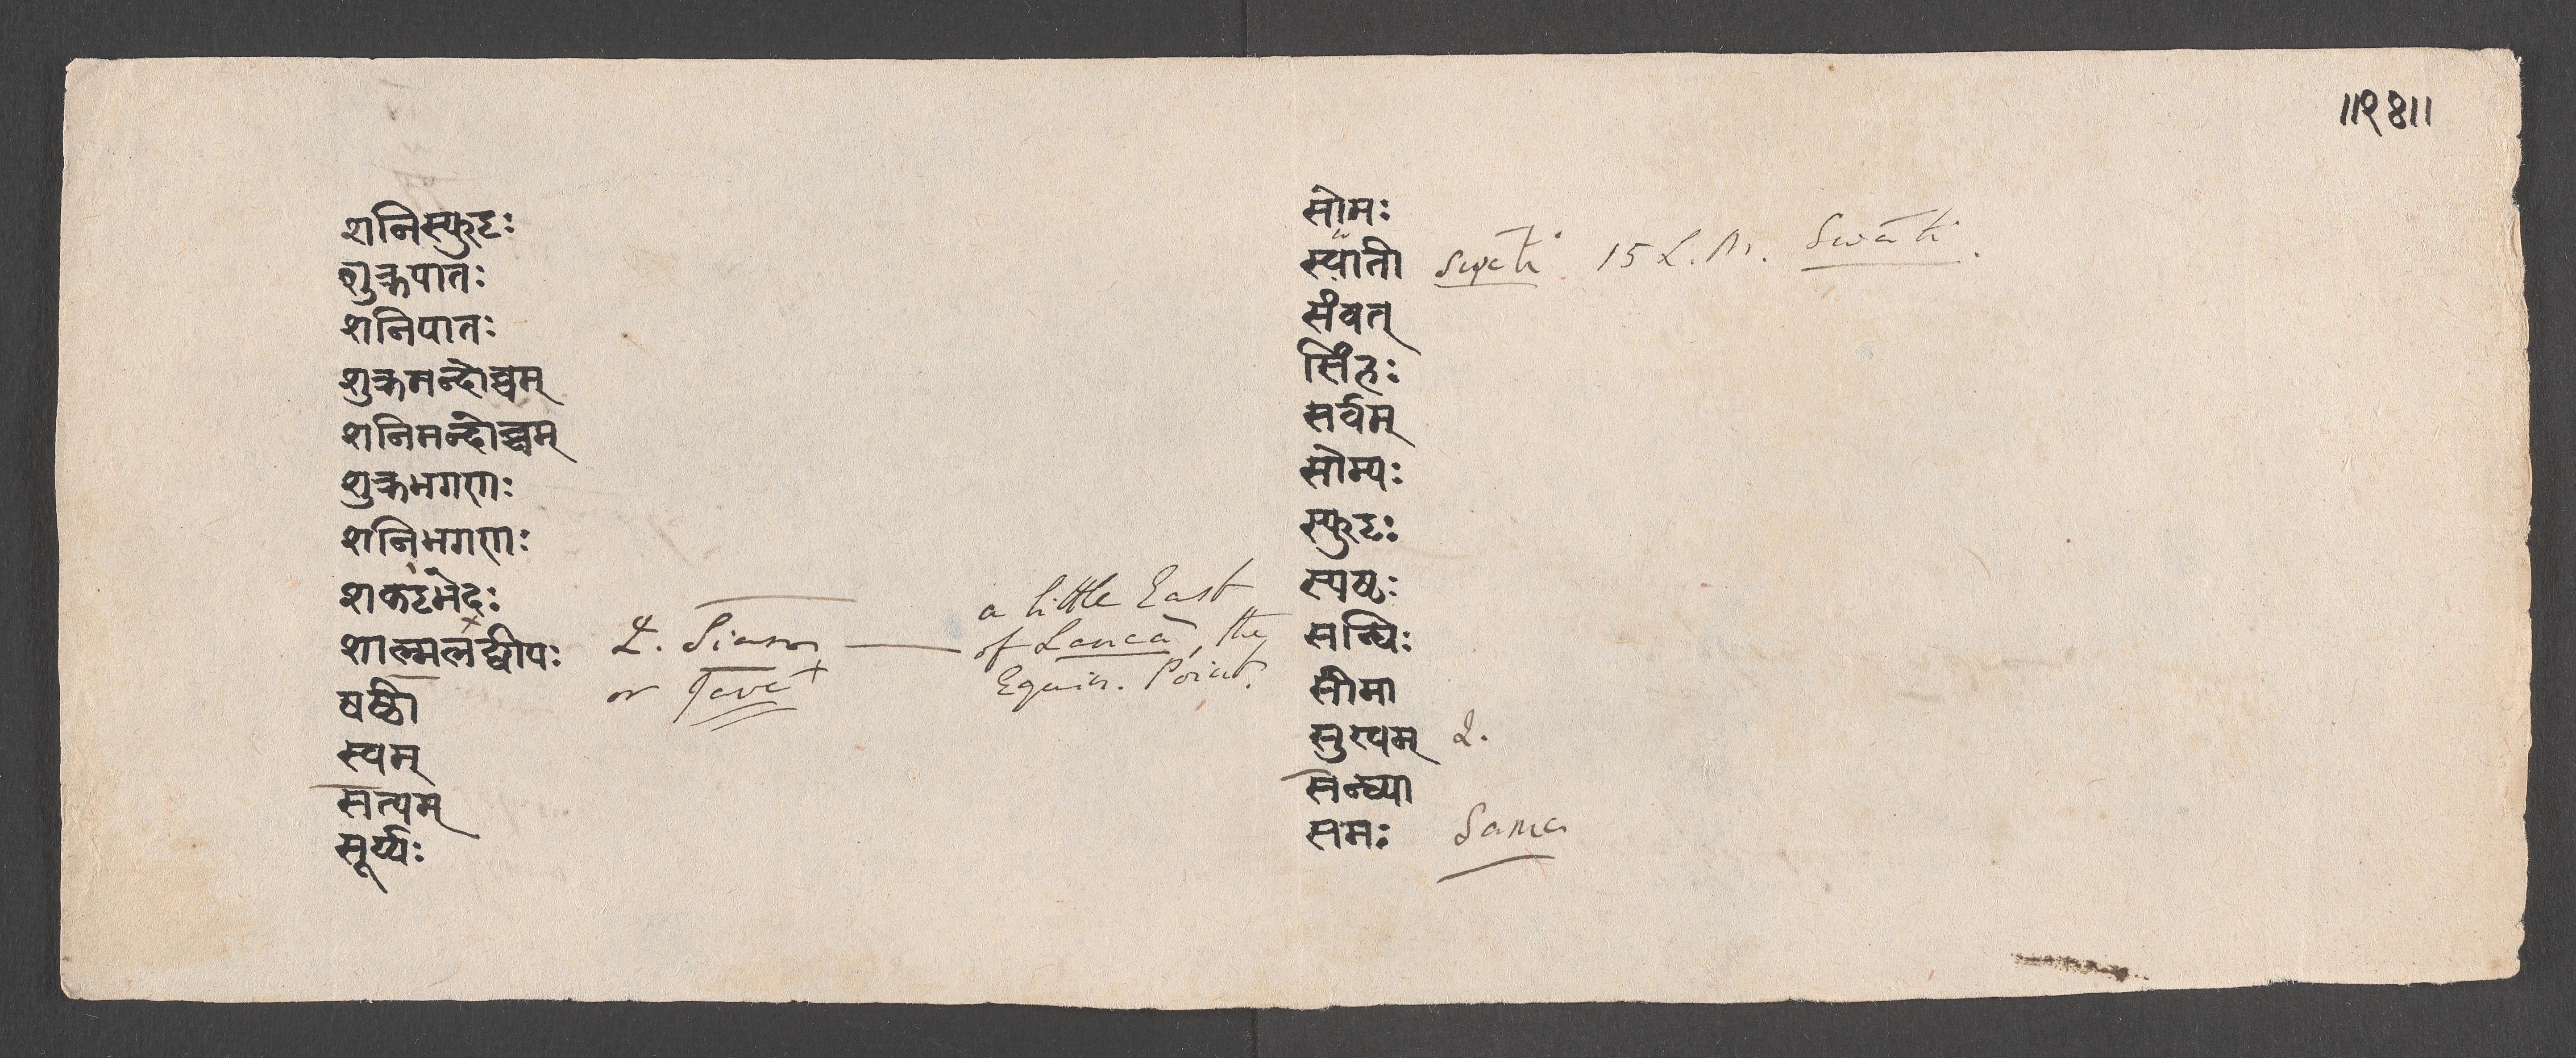 ॥१४॥
शनिस्फुटः
शुक्रपातः
शनिपातः
शुक्रमन्दोच्चम्
शनिमन्दोच्चम्
शुक्रभगणाः
शनिभगणाः
शकटभेदः
शाल्मलद्वीपः Q. Siam — a little East
or Java + of Lancā, the
Equin. Point.
षष्ठी
स्वम्
सत्यम्
सूर्य्यः
सोमः
स्वाती Swāti 15 L. M. Swāti.
संवत्
सिंहः
सर्वम्
सौम्यः
स्फुटः
स्पष्टः
सन्धिः
सीमा
2.
सन्ध्या
समः Sama